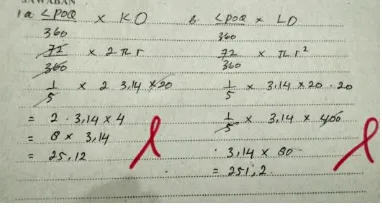 JAWABAN
1 a. <POQ/360 × KO
72/360 × 2πr
1/5 × 2 3,14 × 20
= 2 . 3,14 × 4
= 8 × 3,14
= 25,12
b. <POQ/360 × LO
72/360 × πr²
1/5 × 3,14 × 20 . 20
1/5 × 3,14 × 400
3,14 × 80
= 251,2